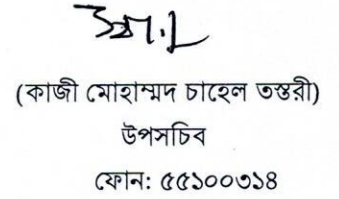 (কাজী মোহাম্মদ চাহেল তস্তরী)
উপসচিব
ফোন: ৫৫১০০৩১৪